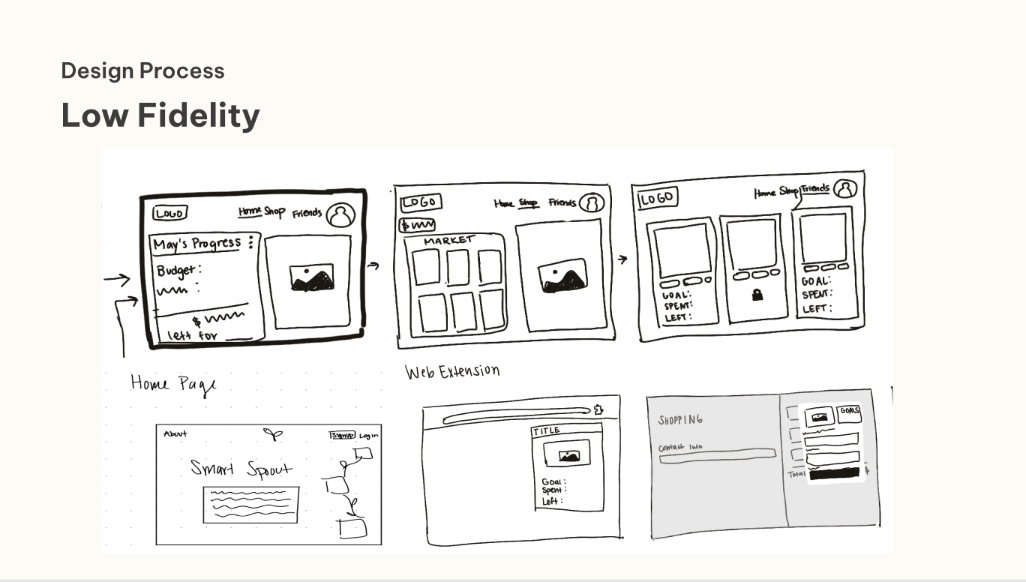 Design Process
Low Fidelity
LOGO
Home Shop Friends
May's Progress
Budget:
$
left for
LOGO
Home Shop Friends
$
MARKET
LOGO
Home Shop Friends
GOAL:
SPENT:
LEFT:
GOAL:
SPENT:
LEFT:
Home Page
Web Extension
About
Signup Login
Smart Sprout
TITLE
Goal:
Spent:
Left:
SHOPPING
Contact Info
GOALS
Total